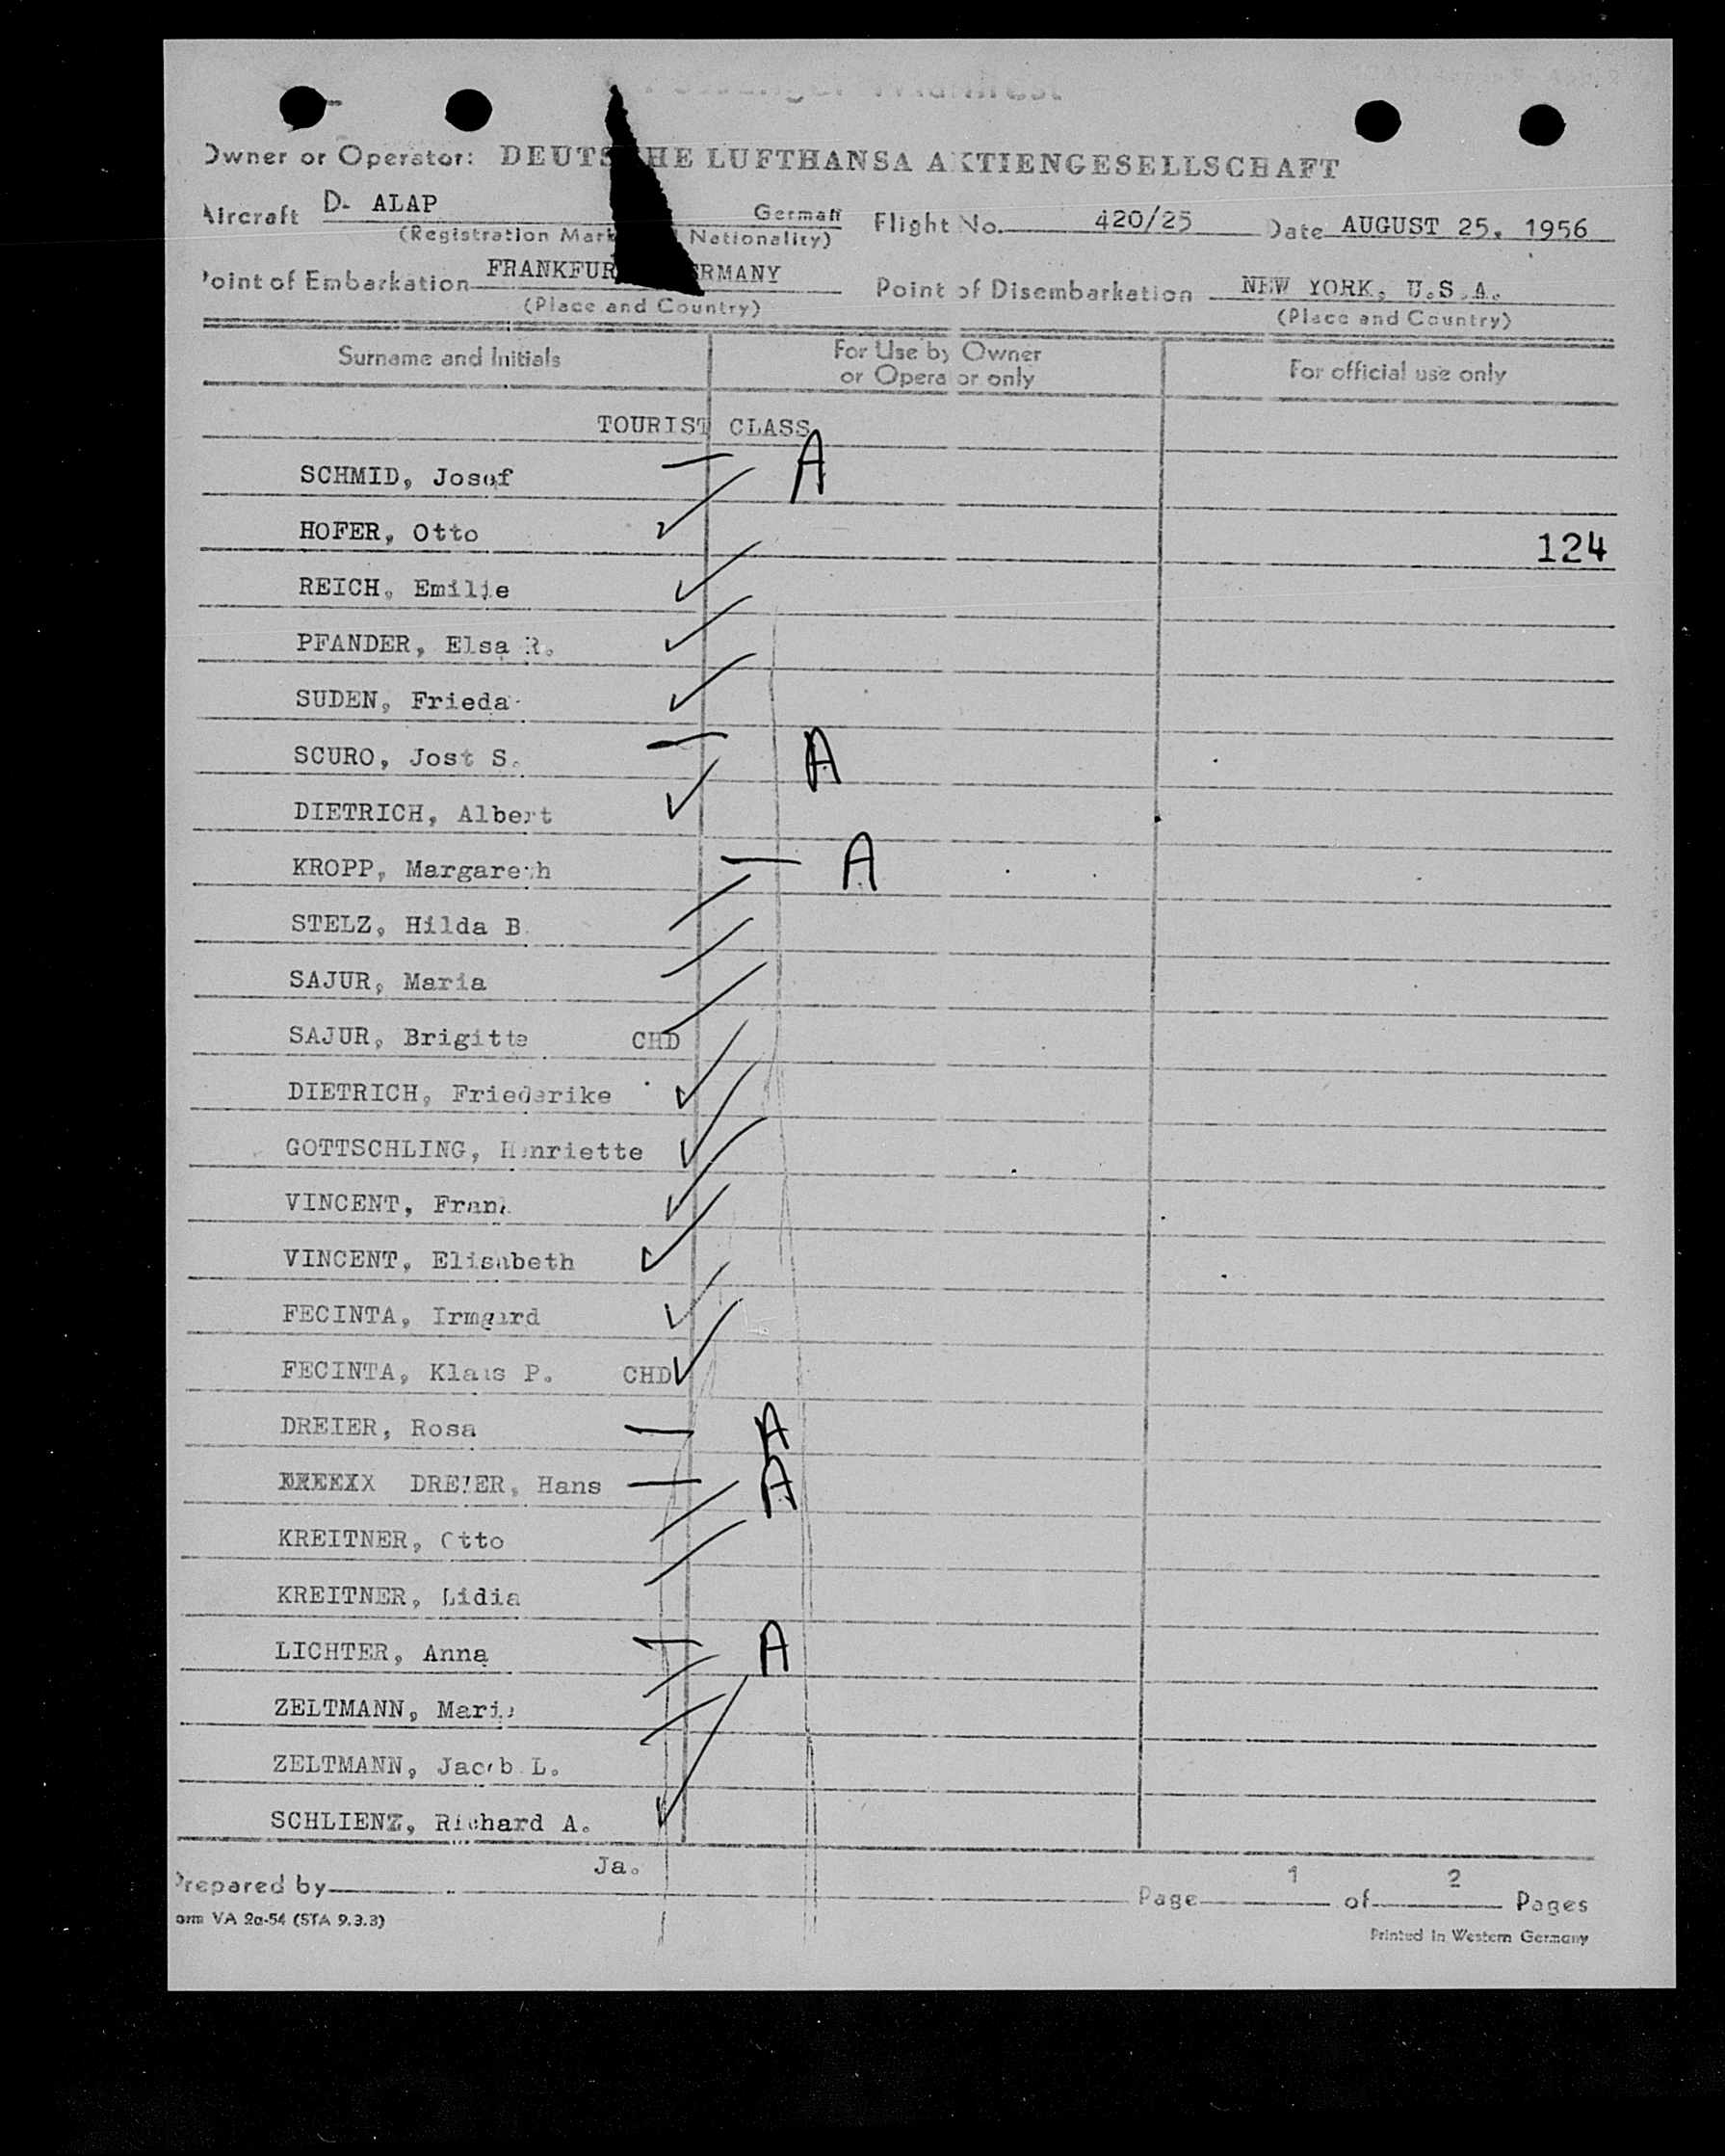 Passenger Manifest
Owner or Operator: DEUTSCHE LUFTHANSA AKTIENGESELLSCHAFT
Aircraft D- ALAP German Flight No. 420/25 Date AUGUST 25, 1956
(Registration Mark Nationality)
Point of Embarkation FRANKFUR ERMANY Point of Disembarkation NEW YORK, U.S.A.
(Place and Country) (Place and Country)
Surname and Initials For Use by Owner or Operator only For official use only
TOURIST CLASS
SCHMID, Josef — A
HOFER, Otto ✓ 124
REICH, Emilie ✓
PFANDER, Elsa R. ✓
SUDEN, Frieda ✓
SCURO, Jost S. — A
DIETRICH, Albert ✓
KROPP, Margareth — A
STELZ, Hilda B.
SAJUR, Maria
SAJUR, Brigitte CHD
DIETRICH, Friederike ✓
GOTTSCHLING, Henriette ✓
VINCENT, Frank ✓
VINCENT, Elisabeth ✓
FECINTA, Irmgard ✓
FECINTA, Klaus P. CHD ✓
DREIER, Rosa — A
DREIER, Hans — A
KREITNER, Otto
KREITNER, Lidia
LICHTER, Anna — A
ZELTMANN, Marie
ZELTMANN, Jacob L.
SCHLIENZ, Richard A. ✓
Ja.
Prepared by Page 1 of 2 Pages
orm VA 2a-54 (STA 9.3.3)
Printed in Western Germany